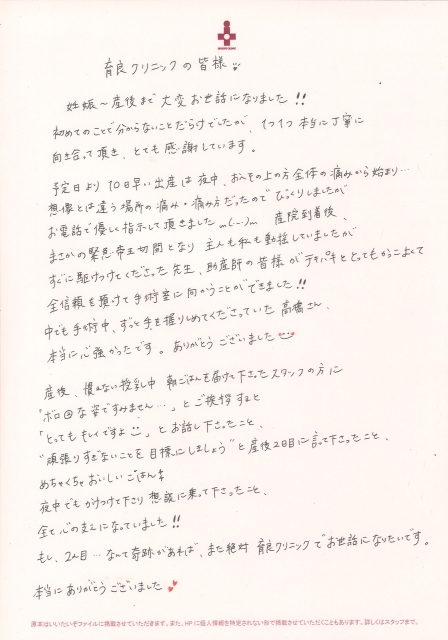 育良クリニックの皆様
妊娠〜産後まで大変お世話になりました!!
初めてのことで分からないことだらけでしたが、1つ1つ本当に丁寧に
向き合って頂き、とても感謝しています。
予定日より10日早い出産は夜中、おへその上の方全体の痛みから始まり…
想像とは違う場所の痛み・痛み方だったのでびっくりしましたが
お電話で優しく指示して頂きました m(_ _)m 産院到着後、
まさかの緊急帝王切開となり 主人も私も動揺していましたが
すぐに駆けつけてくださった先生、助産師の皆様がテキパキととってもかっこよくて
全信頼を預けて手術室に向かうことができました!!
中でも手術中、ずっと手を握りしめてくださっていた高橋さん、
本当に心強かったです。ありがとうございました
産後、慣れない授乳中 朝ごはんを届けて下さったスタッフの方に
"ボロボロな姿ですみません…" とご挨拶すると
「とってもキレイですよ」とお話し下さったこと、
"頑張りすぎないことを目標にしましょう"と産後2日目に言って下さったこと、
めちゃくちゃおいしいごはん
夜中でもかけつけて下さり相談に乗って下さったこと、
全て心の支えになっていました!!
もし、2人目…なんて奇跡があれば、また絶対 育良クリニックでお世話になりたいです。
本当にありがとうございました
原本はいいたいぞファイルに掲載させていただきます。また、HPに個人情報を特定されない形で掲載させていただくこともあります。詳しくはスタッフまで。